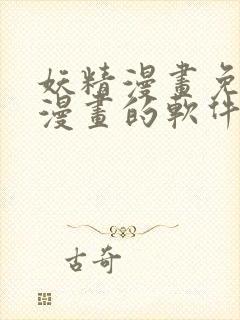 妖精漫畫免
漫畫的軟件
古奇